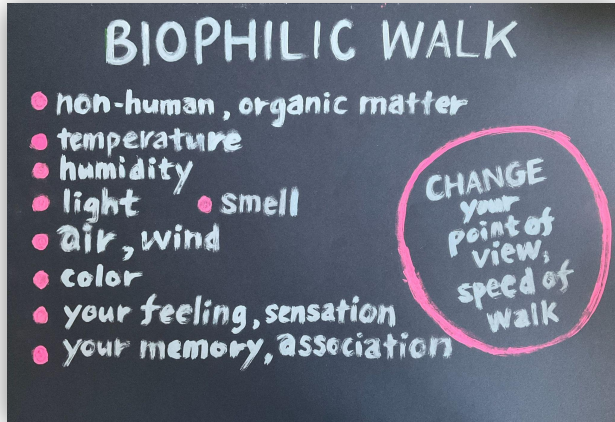 BIOPHILIC WALK
non-human, organic matter
temperature
humidity
light
smell
air, wind
color
your feeling, sensation
your memory, association
CHANGE
your
point of
view,
speed of
walk